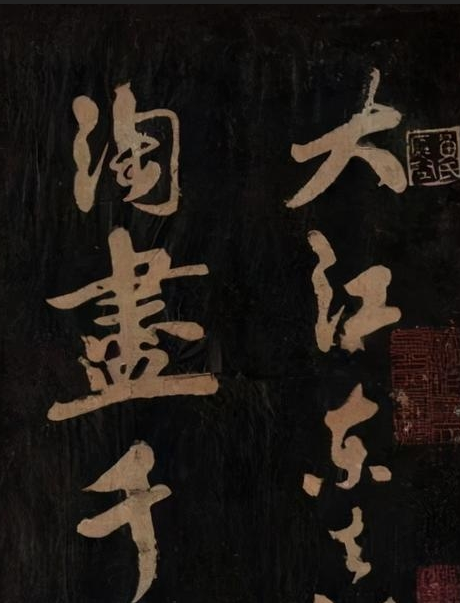 大江东去
淘盡千